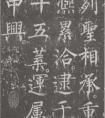 列聖相承重
熙累洽逮于
十五葉運属
中興